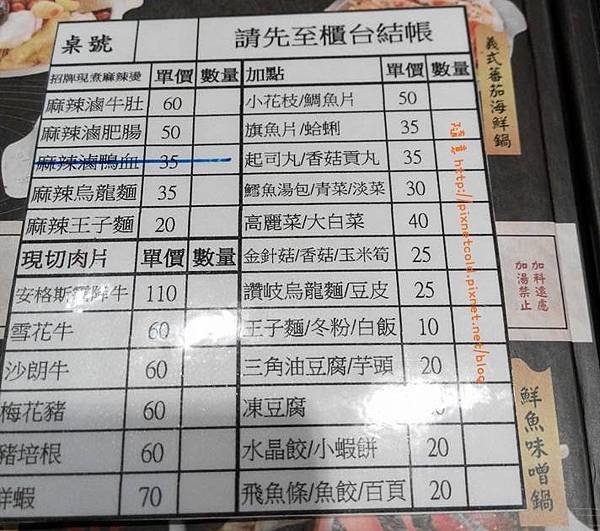 桌號 請先至櫃台結帳
招牌現煮麻辣燙 單價 數量 加點 單價 數量
麻辣滷牛肚 60 小花枝/鯛魚片 50
麻辣滷肥腸 50 旗魚片/蛤蜊 35
麻辣滷鴨血 35 起司丸/香菇貢丸 35
麻辣烏龍麵 35 鱈魚湯包/青菜/淡菜 30
麻辣王子麵 20 高麗菜/大白菜 40
現切肉片 單價 數量 金針菇/香菇/玉米筍 25
安格斯雪降牛 110 讚岐烏龍麵/豆皮 25
雪花牛 60 王子麵/冬粉/白飯 10
沙朗牛 60 三角油豆腐/芋頭 20
梅花豬 60 凍豆腐
豬培根 60 水晶餃/小蝦餅 20
鮮蝦 70 飛魚條/魚餃/百頁 20
義式蕃茄海鮮鍋
加料遠慮
加湯禁止
鮮魚味噌鍋
隨意 http://pixnetcola.pixnet.net/blog